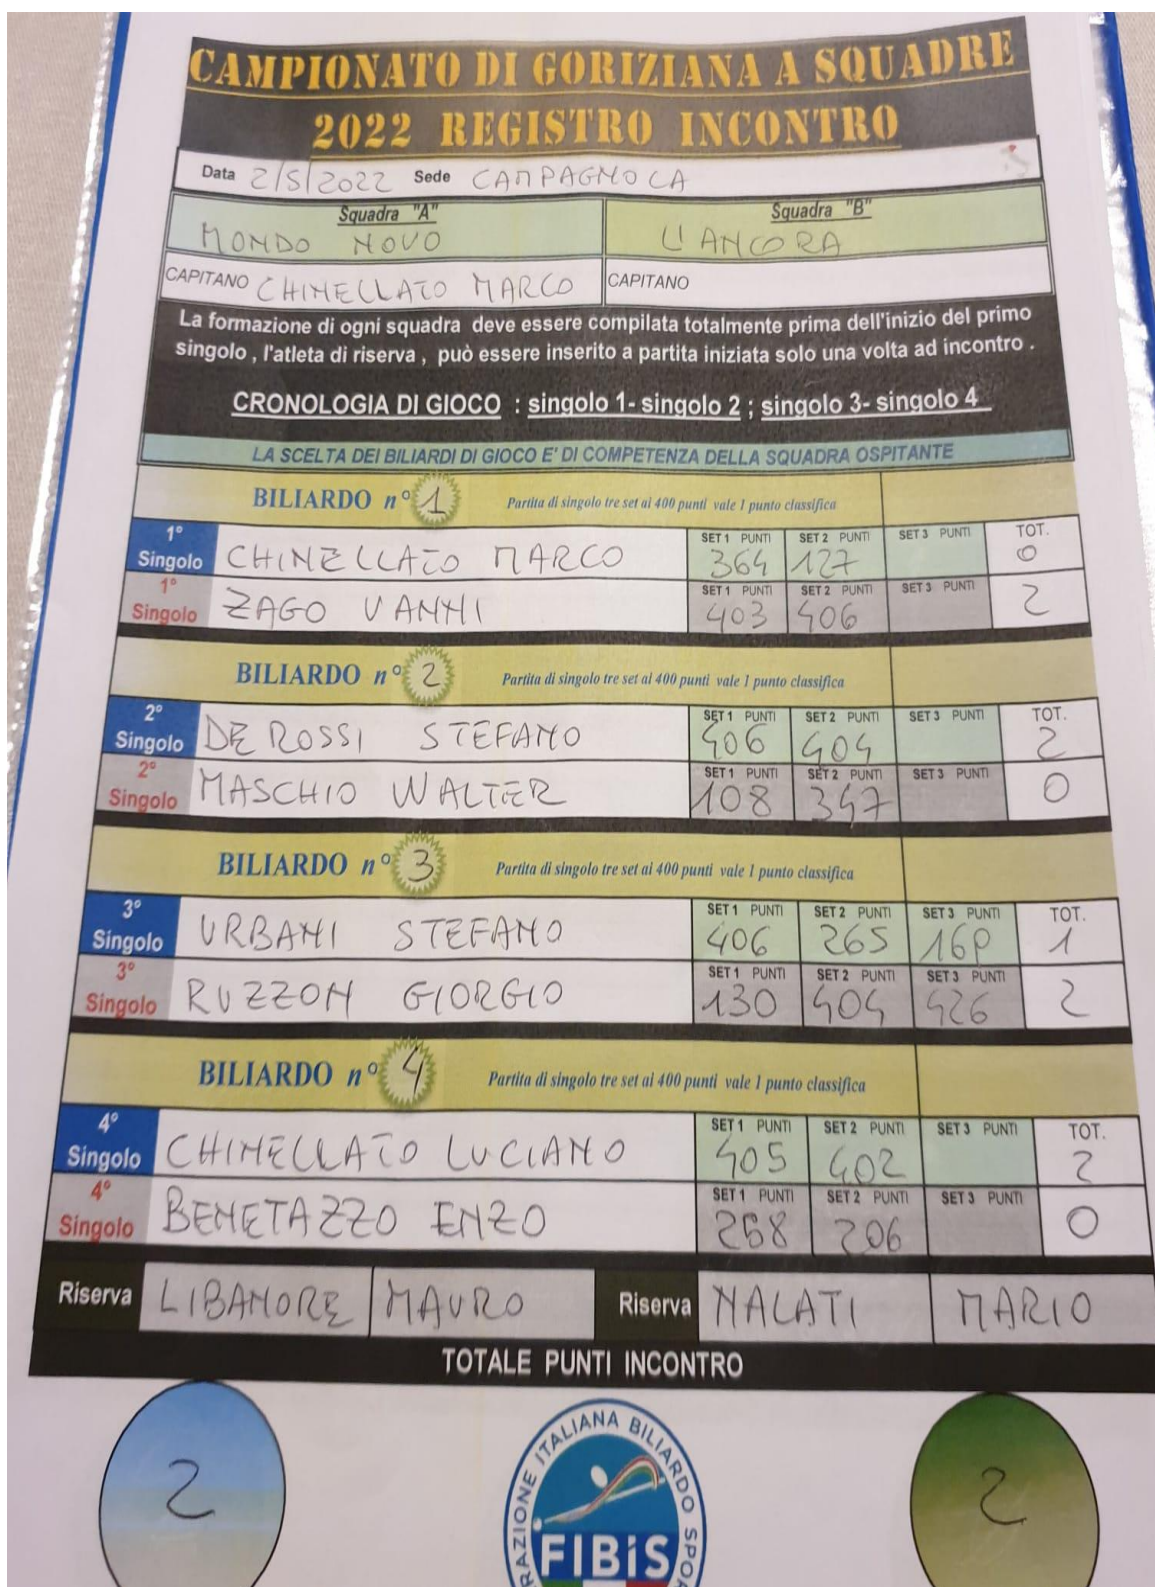 CAMPIONATO DI GORIZIANA A SQUADRE
2022 REGISTRO INCONTRO
Data 2/5/2022 Sede CAMPAGNOLA
Squadra "A" Squadra "B"
MONDO NOVO L'ANCORA
CAPITANO CHINELLATO MARCO CAPITANO
La formazione di ogni squadra deve essere compilata totalmente prima dell'inizio del primo
singolo , l'atleta di riserva , può essere inserito a partita iniziata solo una volta ad incontro .
CRONOLOGIA DI GIOCO : singolo 1- singolo 2 ; singolo 3- singolo 4
LA SCELTA DEI BILIARDI DI GIOCO E' DI COMPETENZA DELLA SQUADRA OSPITANTE
BILIARDO n° 1 Partita di singolo tre set ai 400 punti vale 1 punto classifica
1° SET 1 PUNTI SET 2 PUNTI SET 3 PUNTI TOT.
Singolo CHINELLATO MARCO 364 127 0
1° SET 1 PUNTI SET 2 PUNTI SET 3 PUNTI
Singolo ZAGO VANNI 403 406 2
BILIARDO n° 2 Partita di singolo tre set ai 400 punti vale 1 punto classifica
2° SET 1 PUNTI SET 2 PUNTI SET 3 PUNTI TOT.
Singolo DE ROSSI STEFANO 406 404 2
2° SET 1 PUNTI SET 2 PUNTI SET 3 PUNTI
Singolo MASCHIO WALTER 108 347 0
BILIARDO n° 3 Partita di singolo tre set ai 400 punti vale 1 punto classifica
3° SET 1 PUNTI SET 2 PUNTI SET 3 PUNTI TOT.
Singolo URBANI STEFANO 406 265 160 1
3° SET 1 PUNTI SET 2 PUNTI SET 3 PUNTI
Singolo RUZZON GIORGIO 130 404 426 2
BILIARDO n° 4 Partita di singolo tre set ai 400 punti vale 1 punto classifica
4° SET 1 PUNTI SET 2 PUNTI SET 3 PUNTI TOT.
Singolo CHINELLATO LUCIANO 405 402 2
4° SET 1 PUNTI SET 2 PUNTI SET 3 PUNTI
Singolo BENETAZZO ENZO 268 206 0
Riserva LIBANORE MAURO Riserva NALATI MARIO
TOTALE PUNTI INCONTRO
2 2
RAZIONE ITALIANA BILIARDO SPO
FIBiS